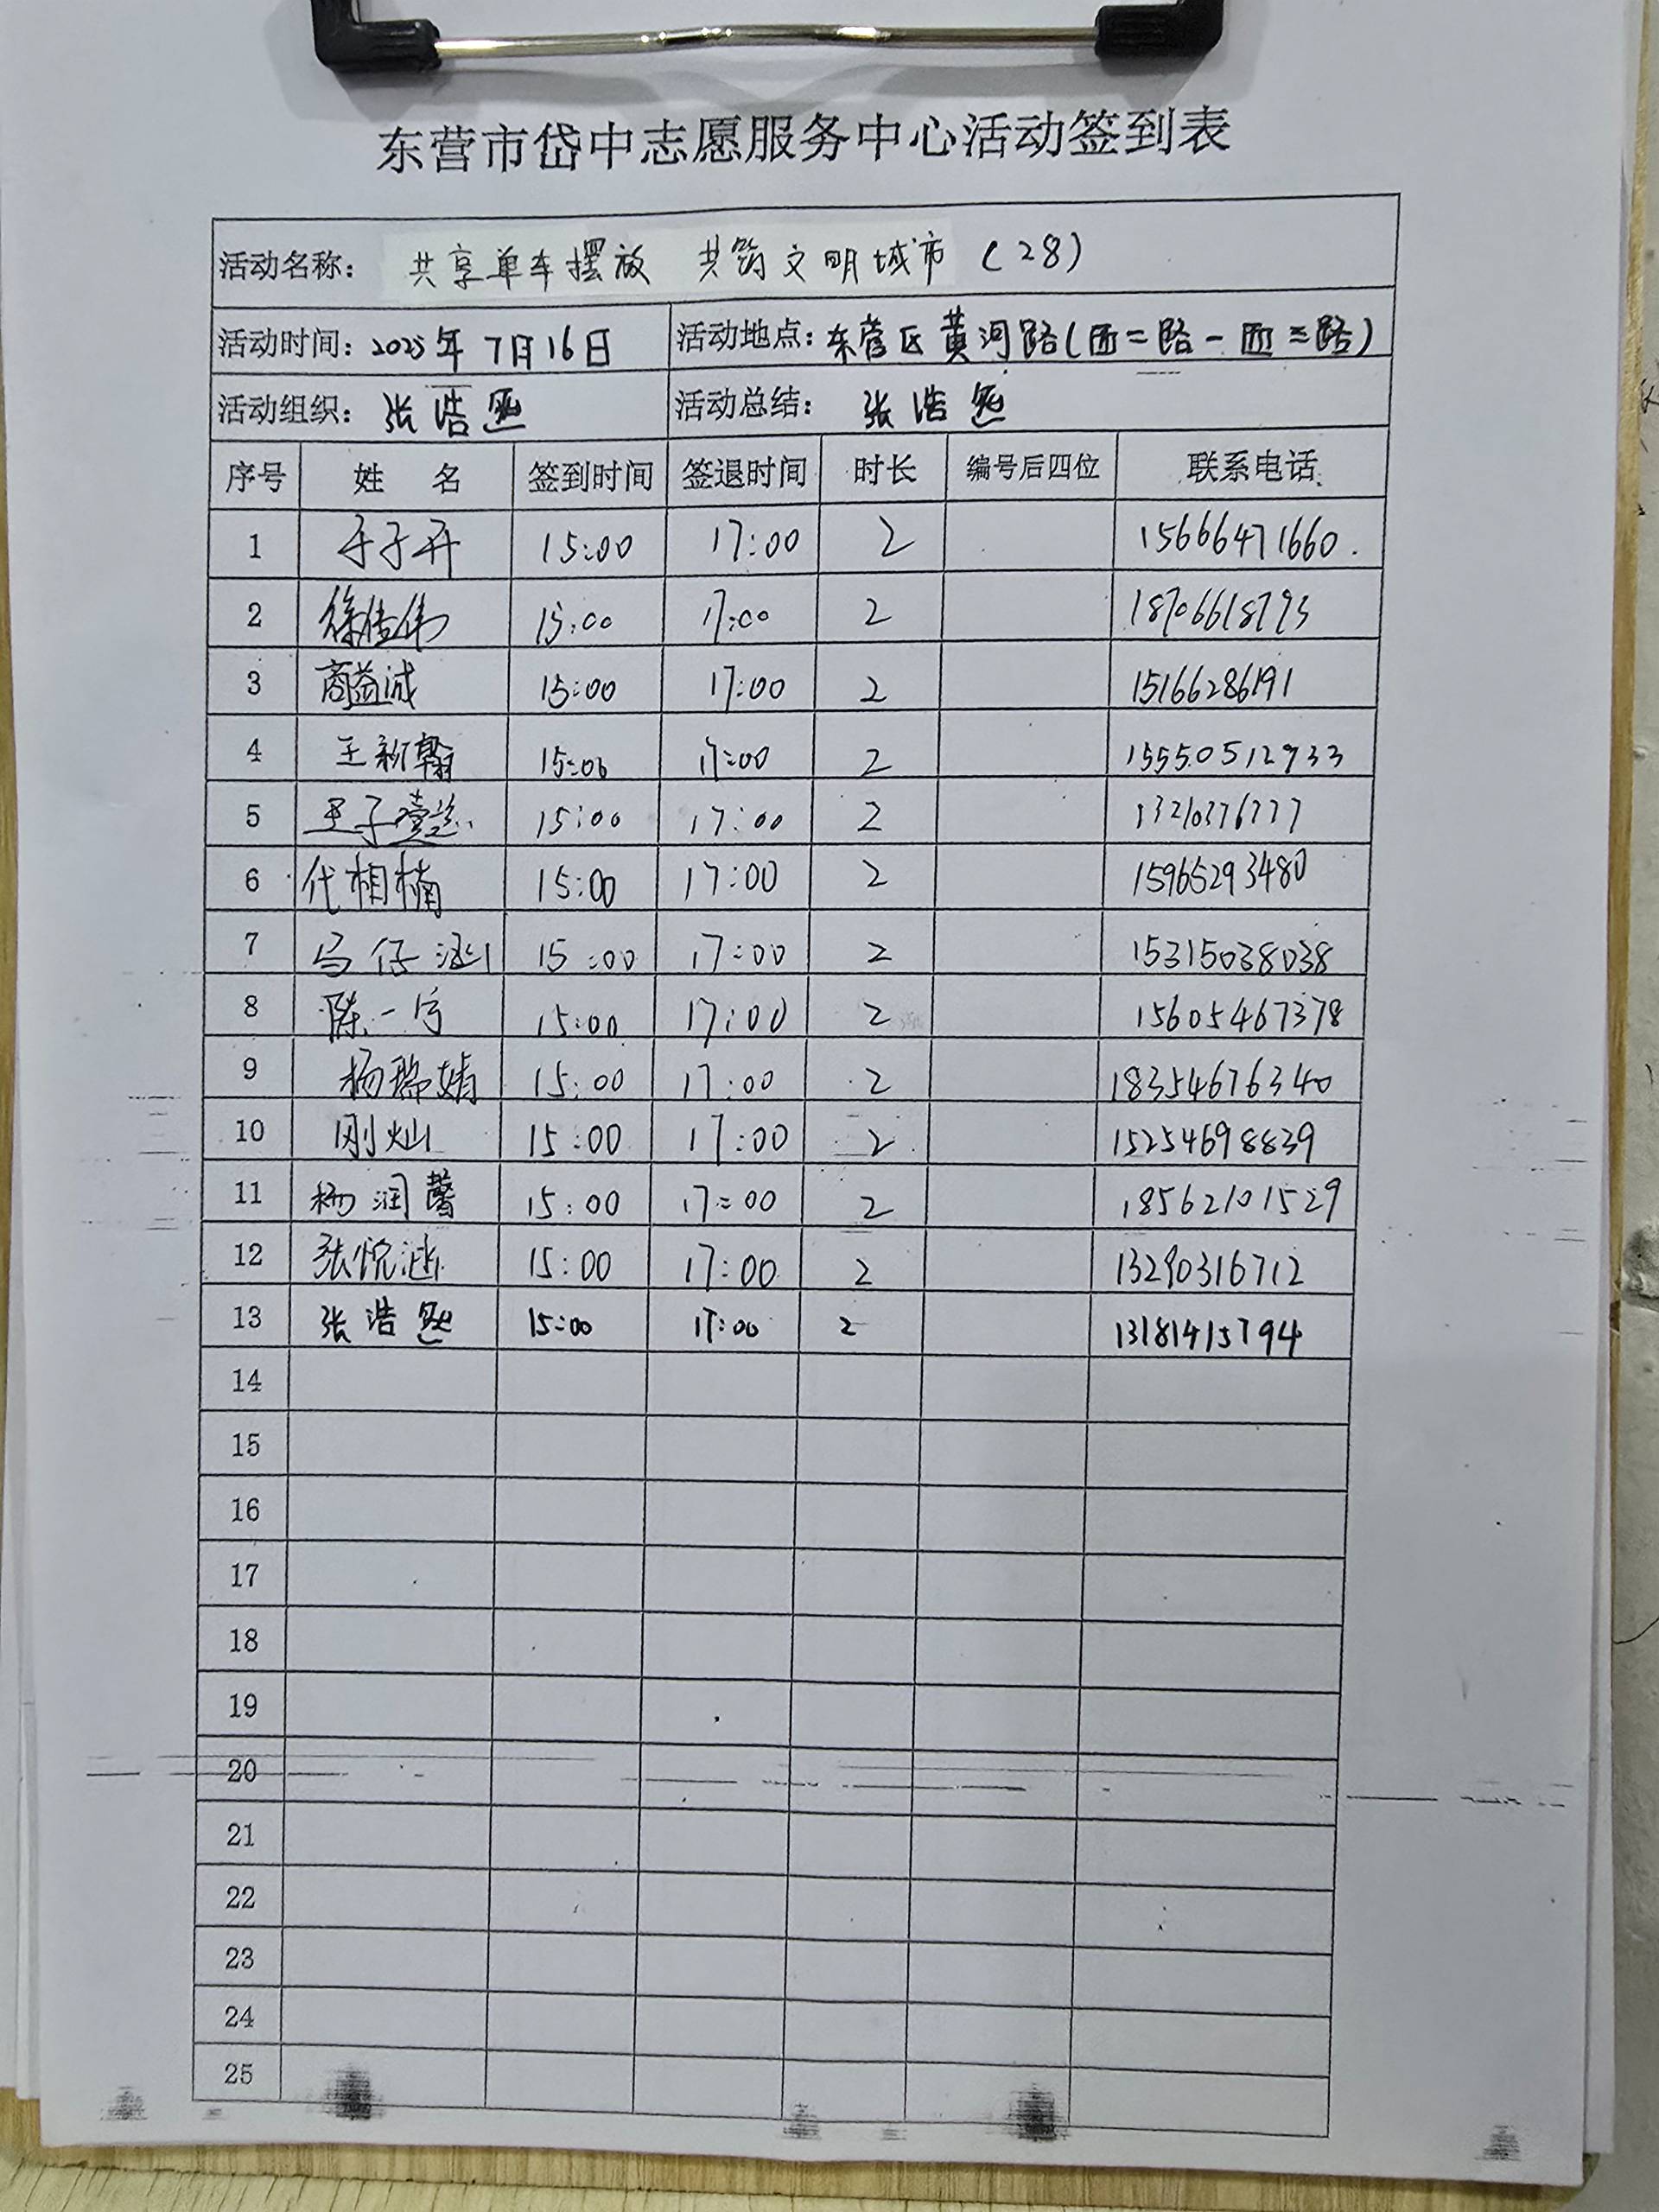 东营市岱中志愿服务中心活动签到表
活动名称： 共享单车摆放 共筑文明城市（28）
活动时间：2025年7月16日 活动地点：东营区黄河路(西二路-西三路)
活动组织： 张浩 活动总结： 张浩
序号 姓 名 签到时间 签退时间 时长 编号后四位 联系电话
1 于子开 15:00 17:00 2 15666471660
2 15:00 17:00 2
3 商益诚 15:00 17:00 2 15166286191
4 王新翰 15:00 17:00 2 15550512933
5 15:00 17:00 2
6 代相楠 15:00 17:00 2 15965293480
7 马仔涵 15:00 17:00 2 15315038038
8 陈一 15:00 17:00 2 15605467378
9 杨瑞婧 15:00 17:00 2 18354676340
10 刚灿 15:00 17:00 2 15254698839
11 杨润馨 15:00 17:00 2 18562101529
12 张悦涵 15:00 17:00 2 13290316712
13 张浩 15:00 17:00 2 13181415794
14
15
16
17
18
19
20
21
22
23
24
25